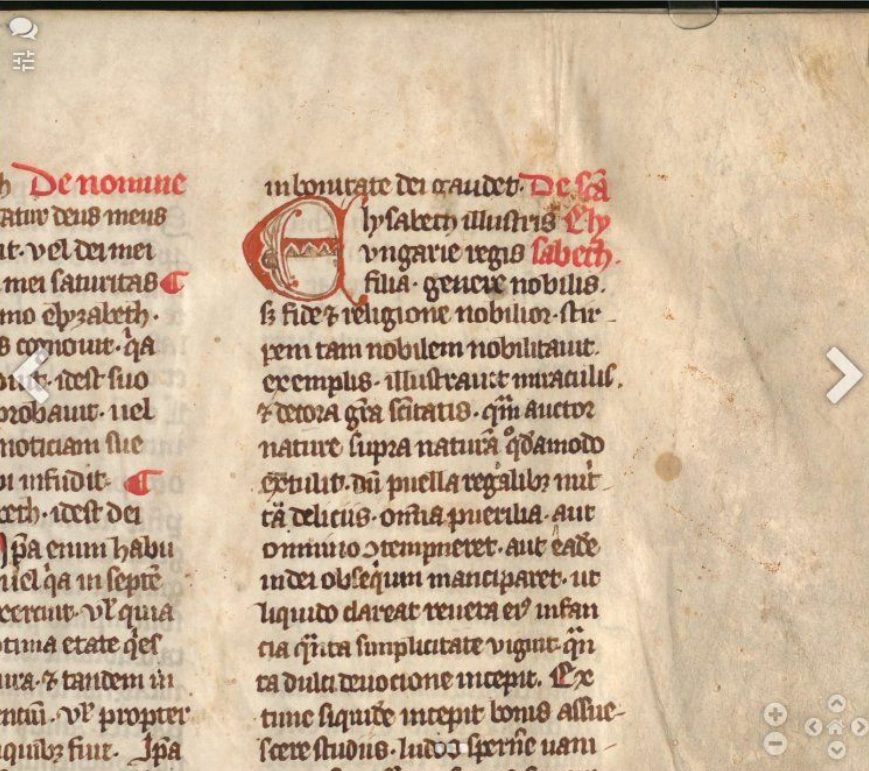 h De nomine
atur deus meus
it · vel dei mei
mei saturitas
mo elyzabeth ·
s cognouit · q̇a
idest suo
probauit · uel
noticiam sue
infudit ·
beth · idest dei
ip̄a enim habu
uel q̇a in septē
exercuit · vl̓ quia
etate
ura · ⁊ tandem in
vl̓ propter
fiut · Ip̄a
in bonitate dei gaudet · De sc̄a
Elysabeth illustris Ely
vngarie regis sabeth .
filia · genere nobilis .
sꝫ fide ⁊ religione nobilior · stir
pem tam nobilem nobilitauit .
exemplis · illustrauit miraculis .
⁊ decora gr̄a sc̄itatis · qm̄ auctor
nature supra naturā qͦdāmodo
extulit · dū puella regalibꝫ nut
ta deliciis · om̄ia puerilia · aut
omnino ꝯtempneret · aut eadē
in dei obsequium manciparet · ut
liquido clareat reuera eiꝰ infan
cia q̄nta simplicitate viguit · q̄n
ta dulci deuocione incepit . Ex
tunc siquidē incepit bonis assue
scere studiis · ludos sperne uani